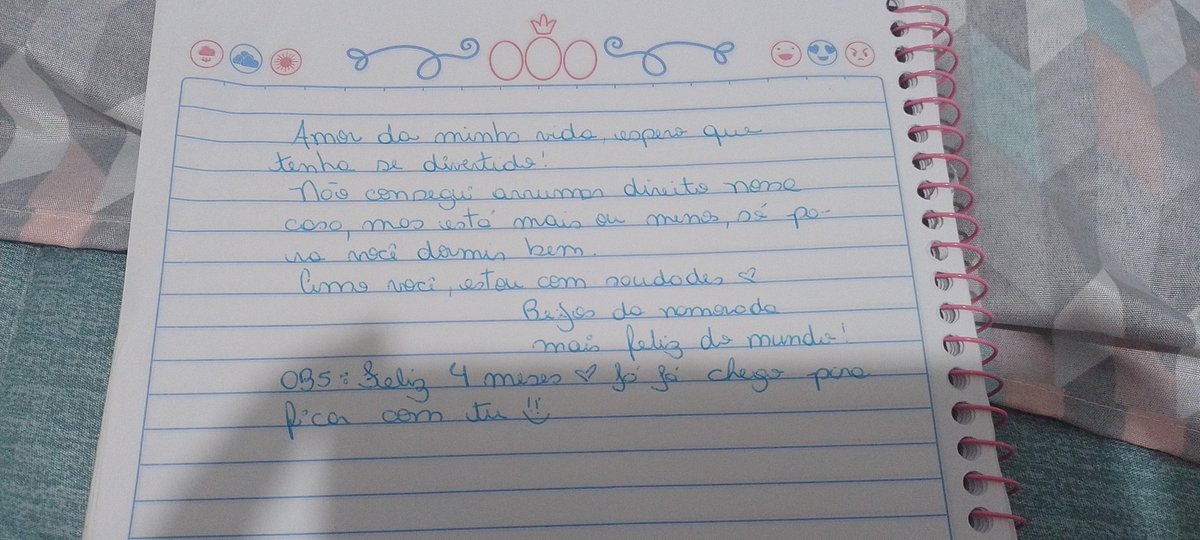 Amor da minha vida, espero que
tenha se divertido!
Não consegui arrumar direito nossa
casa, mas está mais ou menos, só pa-
ra você dormir bem.
Amo você, estou com saudades ♡
Beijos da namorada
mais feliz do mundo!
OBS: Feliz 4 meses ♡ Já já chego para
ficar com tu !!